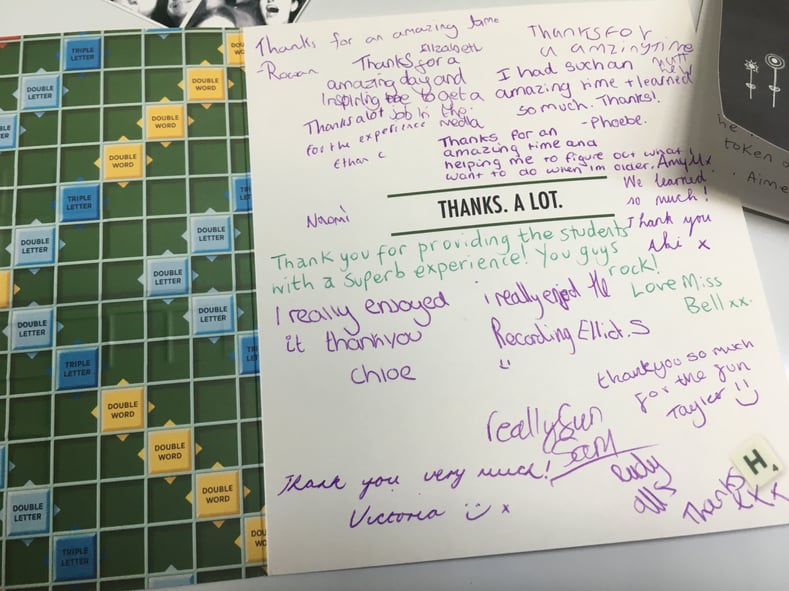 TRIPLE LETTER
DOUBLE WORD
DOUBLE LETTER
DOUBLE WORD
DOUBLE WORD
TRIPLE LETTER
DOUBLE LETTER
DOUBLE LETTER
DOUBLE LETTER
DOUBLE LETTER
DOUBLE LETTER
TRIPLE LETTER
DOUBLE WORD
DOUBLE WORD
DOUBLE WORD
DOUBLE LETTER
TRIPLE LETTER
Thanks for an amazing time
Elizabeth
- Rowan
Thanks for a
amazing day and
Inspiring me to get a
job in the
media
Thanks alot
for the experience
Ethan C
Thanks for
a amzing time
I had such an
amazing time + learned
so much. Thanks!
- Phoebe.
Thanks for an
amazing time and
helping me to figure out what I
want to do when im older. Amy
We learned
so much!
Thank you
x
Naomi
THANKS. A LOT.
Thank you for providing the students
with a superb experience! You guys
rock!
Love Miss
Bell xx.
I really enjoyed
it thankyou
Chloe
i really enjod the
Recording Elliot.S
thankyou so much
for the fun
Tayler
really fun
Thank you very much!
Victoria x
Thanks
xxx
H
token o
Aime